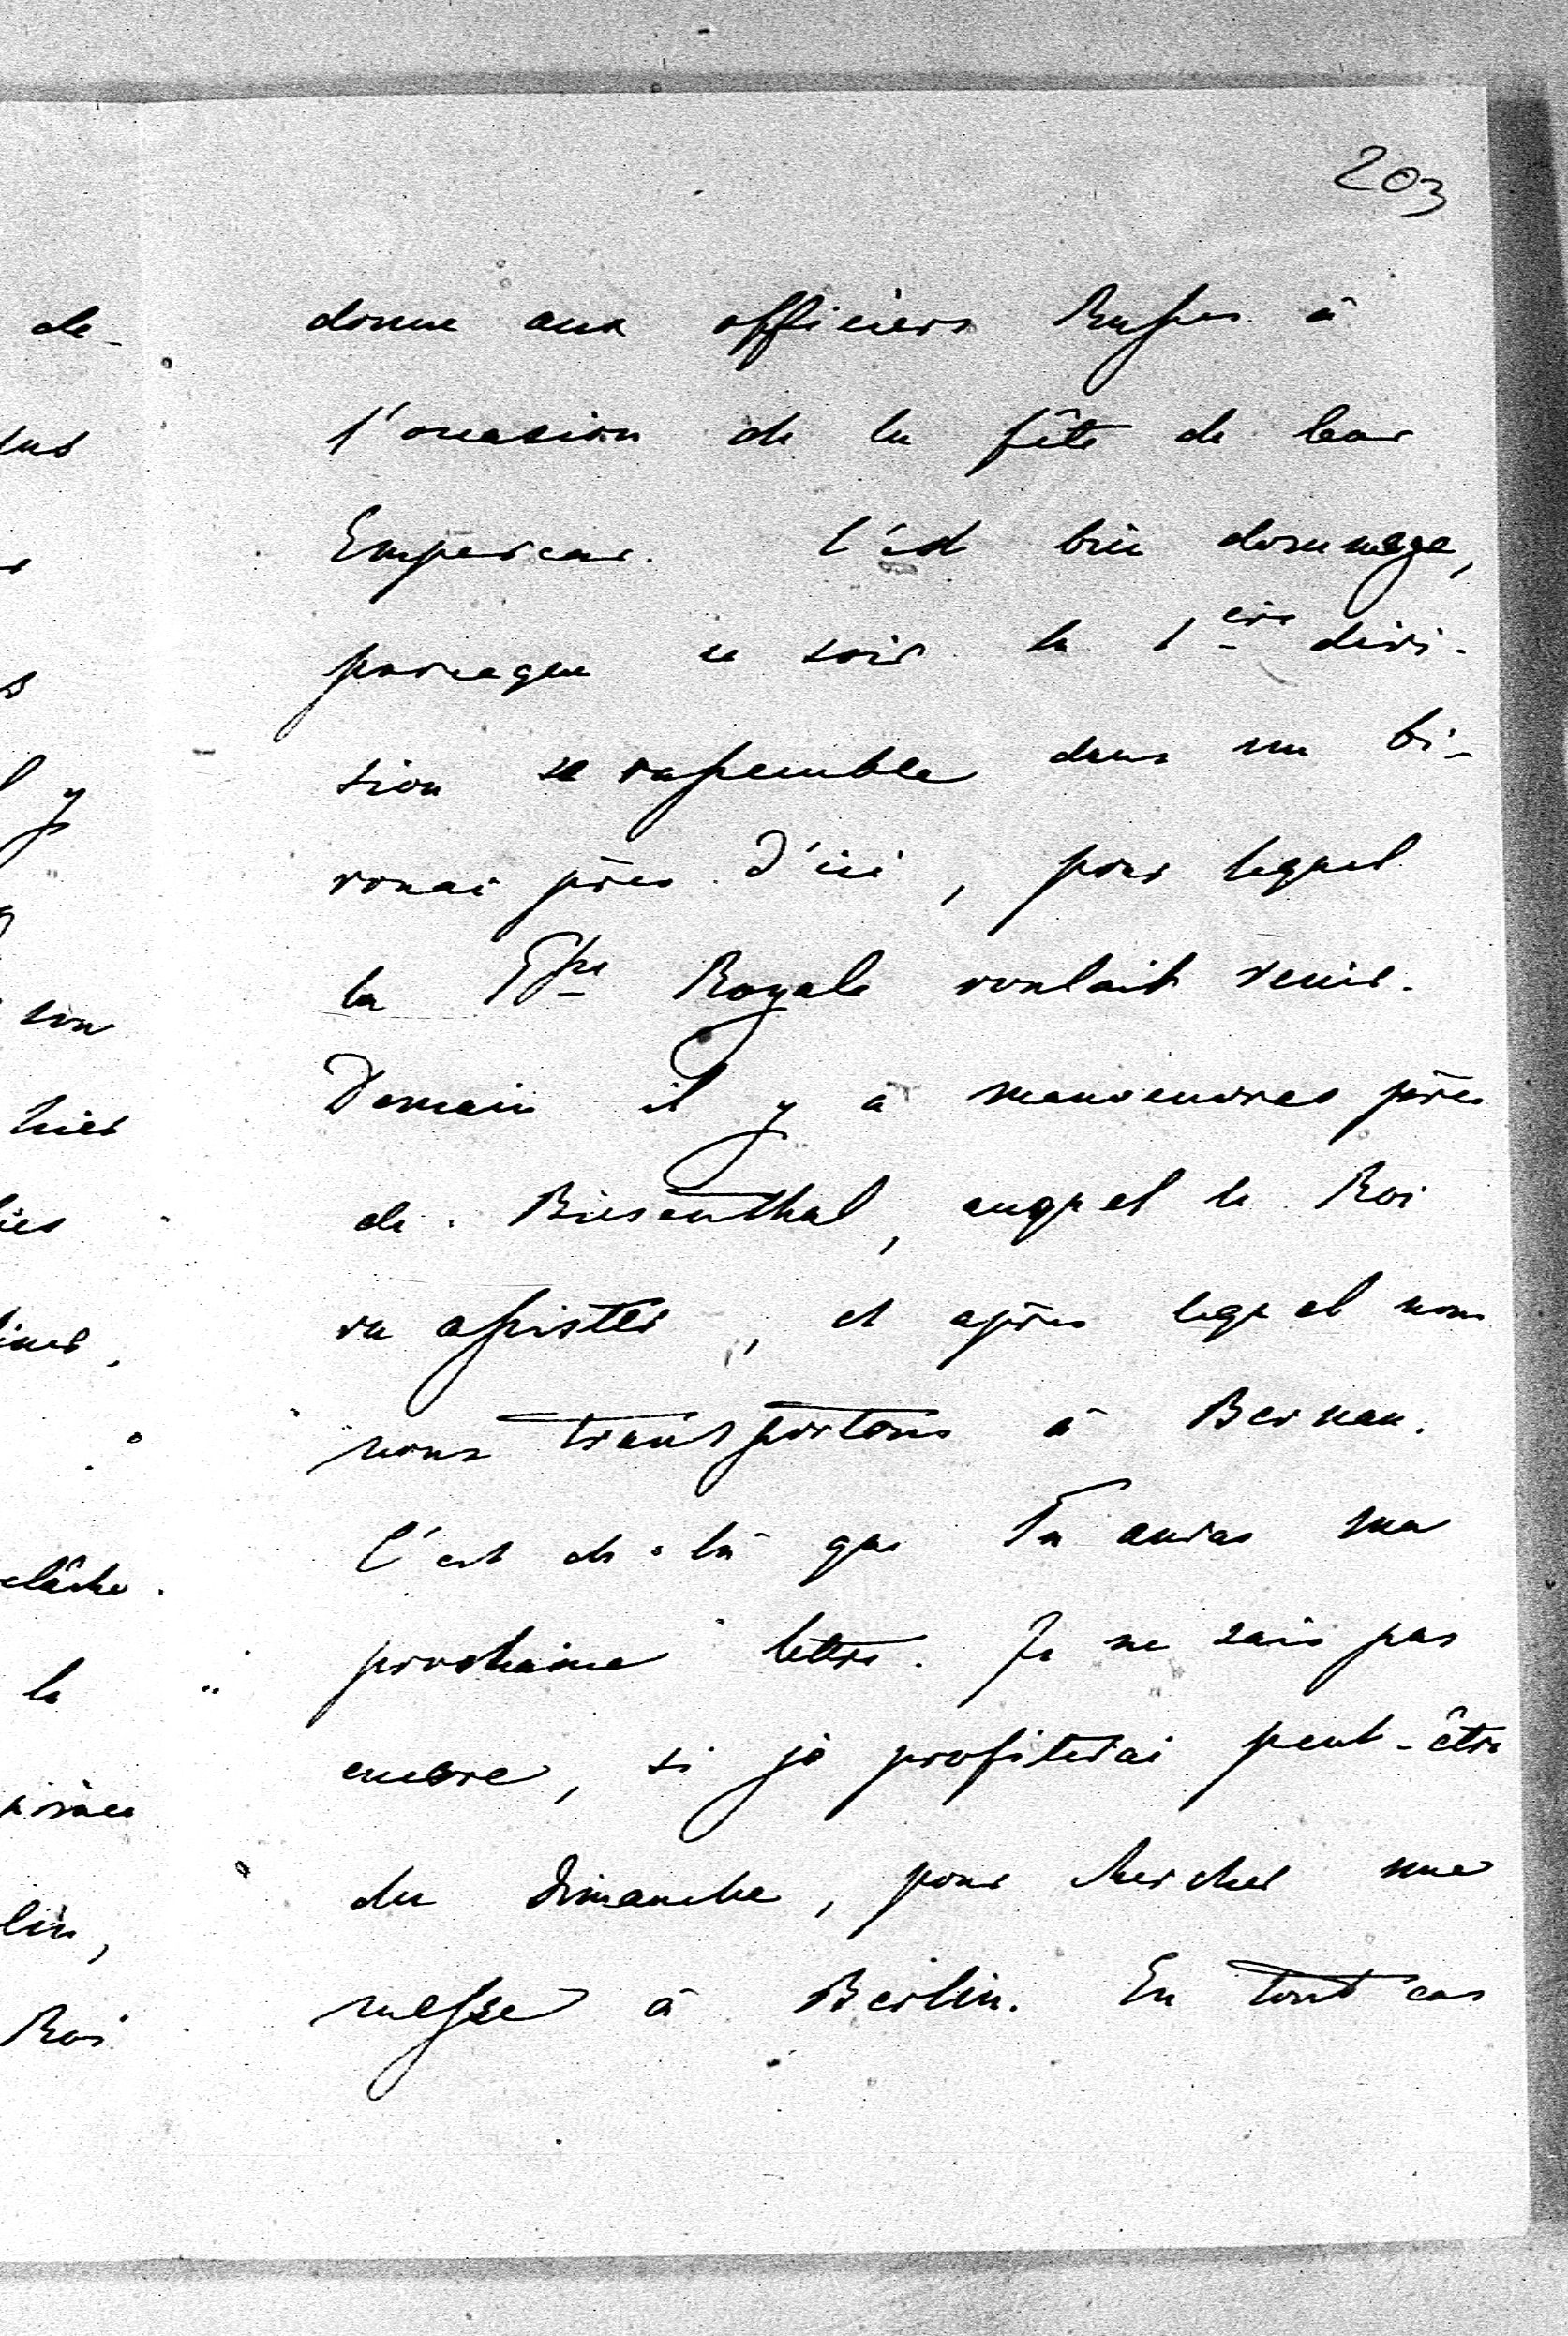 203
donne aux officiers Russes à
l'occasion de la fête de leur
Empereur. C'est bien dommage,
parceque ce soir la 1ère divi-
sion se rassemble dans un bi-
vouac près d'ici, pour lequel
la Psse Royale voulait venir.
Demain il y a manoeuvres près
de Biesenthal, auquel le Roi
va assister, et après lequel nous
nous transportons à Bernau.
C'est de-là que Tu auras ma
prochaine lettre. Je ne sais pas
encore, si je profiterai peut-être
du Dimanche, pour chercher une
messe à Berlin. En tout cas
de-
y
son
hier
elâche.
la
lin,
Roi